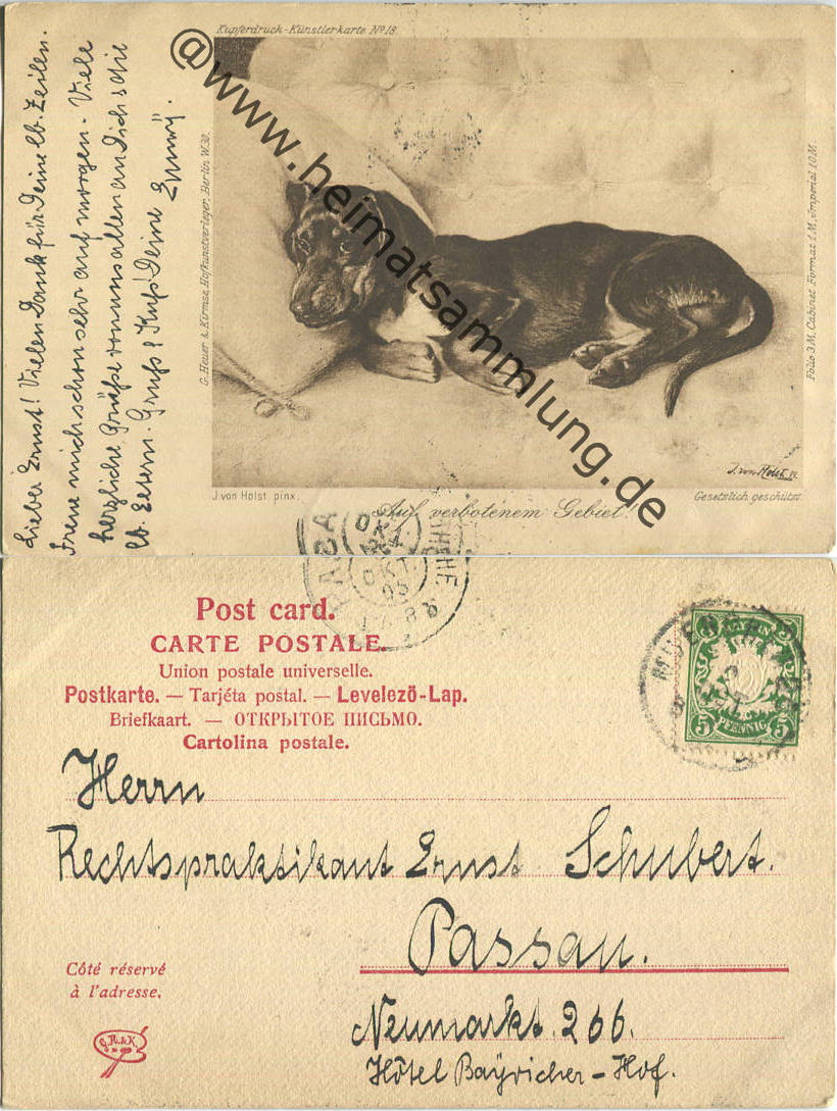 Kupferdruck-Künstlerkarte No 18.
Lieber Ernst! Vielen Dank für Deine lb. Zeilen.
Freue mich schon sehr auf morgen. Viele
herzliche Grüße von uns allen an Dich & die
lb. Eltern. Gruß & Kuß Deine Emmy.
G. Heuer & Kirmse, Hofkunstverleger, Berlin W.30.
@www.heimatsammlung.de
Folio 3 M. Cabinet Format 1 M. Imperial 10 M.
J. von Holst
J. von Holst pinx.
Auf verbotenem Gebiet.
Gesetzlich geschützt.
OKT.
OKT.
05
Post card.
CARTE POSTALE.
Union postale universelle.
Postkarte. — Tarjéta postal. — Levelezö-Lap.
Briefkaart. — ОТКРЫТОЕ ПИСЬМО.
Cartolina postale.
BAYERN
5 PFENNIG 5
Herrn
Rechtspraktikant Ernst Schubert.
Passau.
Côté réservé
à l'adresse.
Neumarkt. 266.
Hôtel Bayricher-Hof.
G.H.&K.